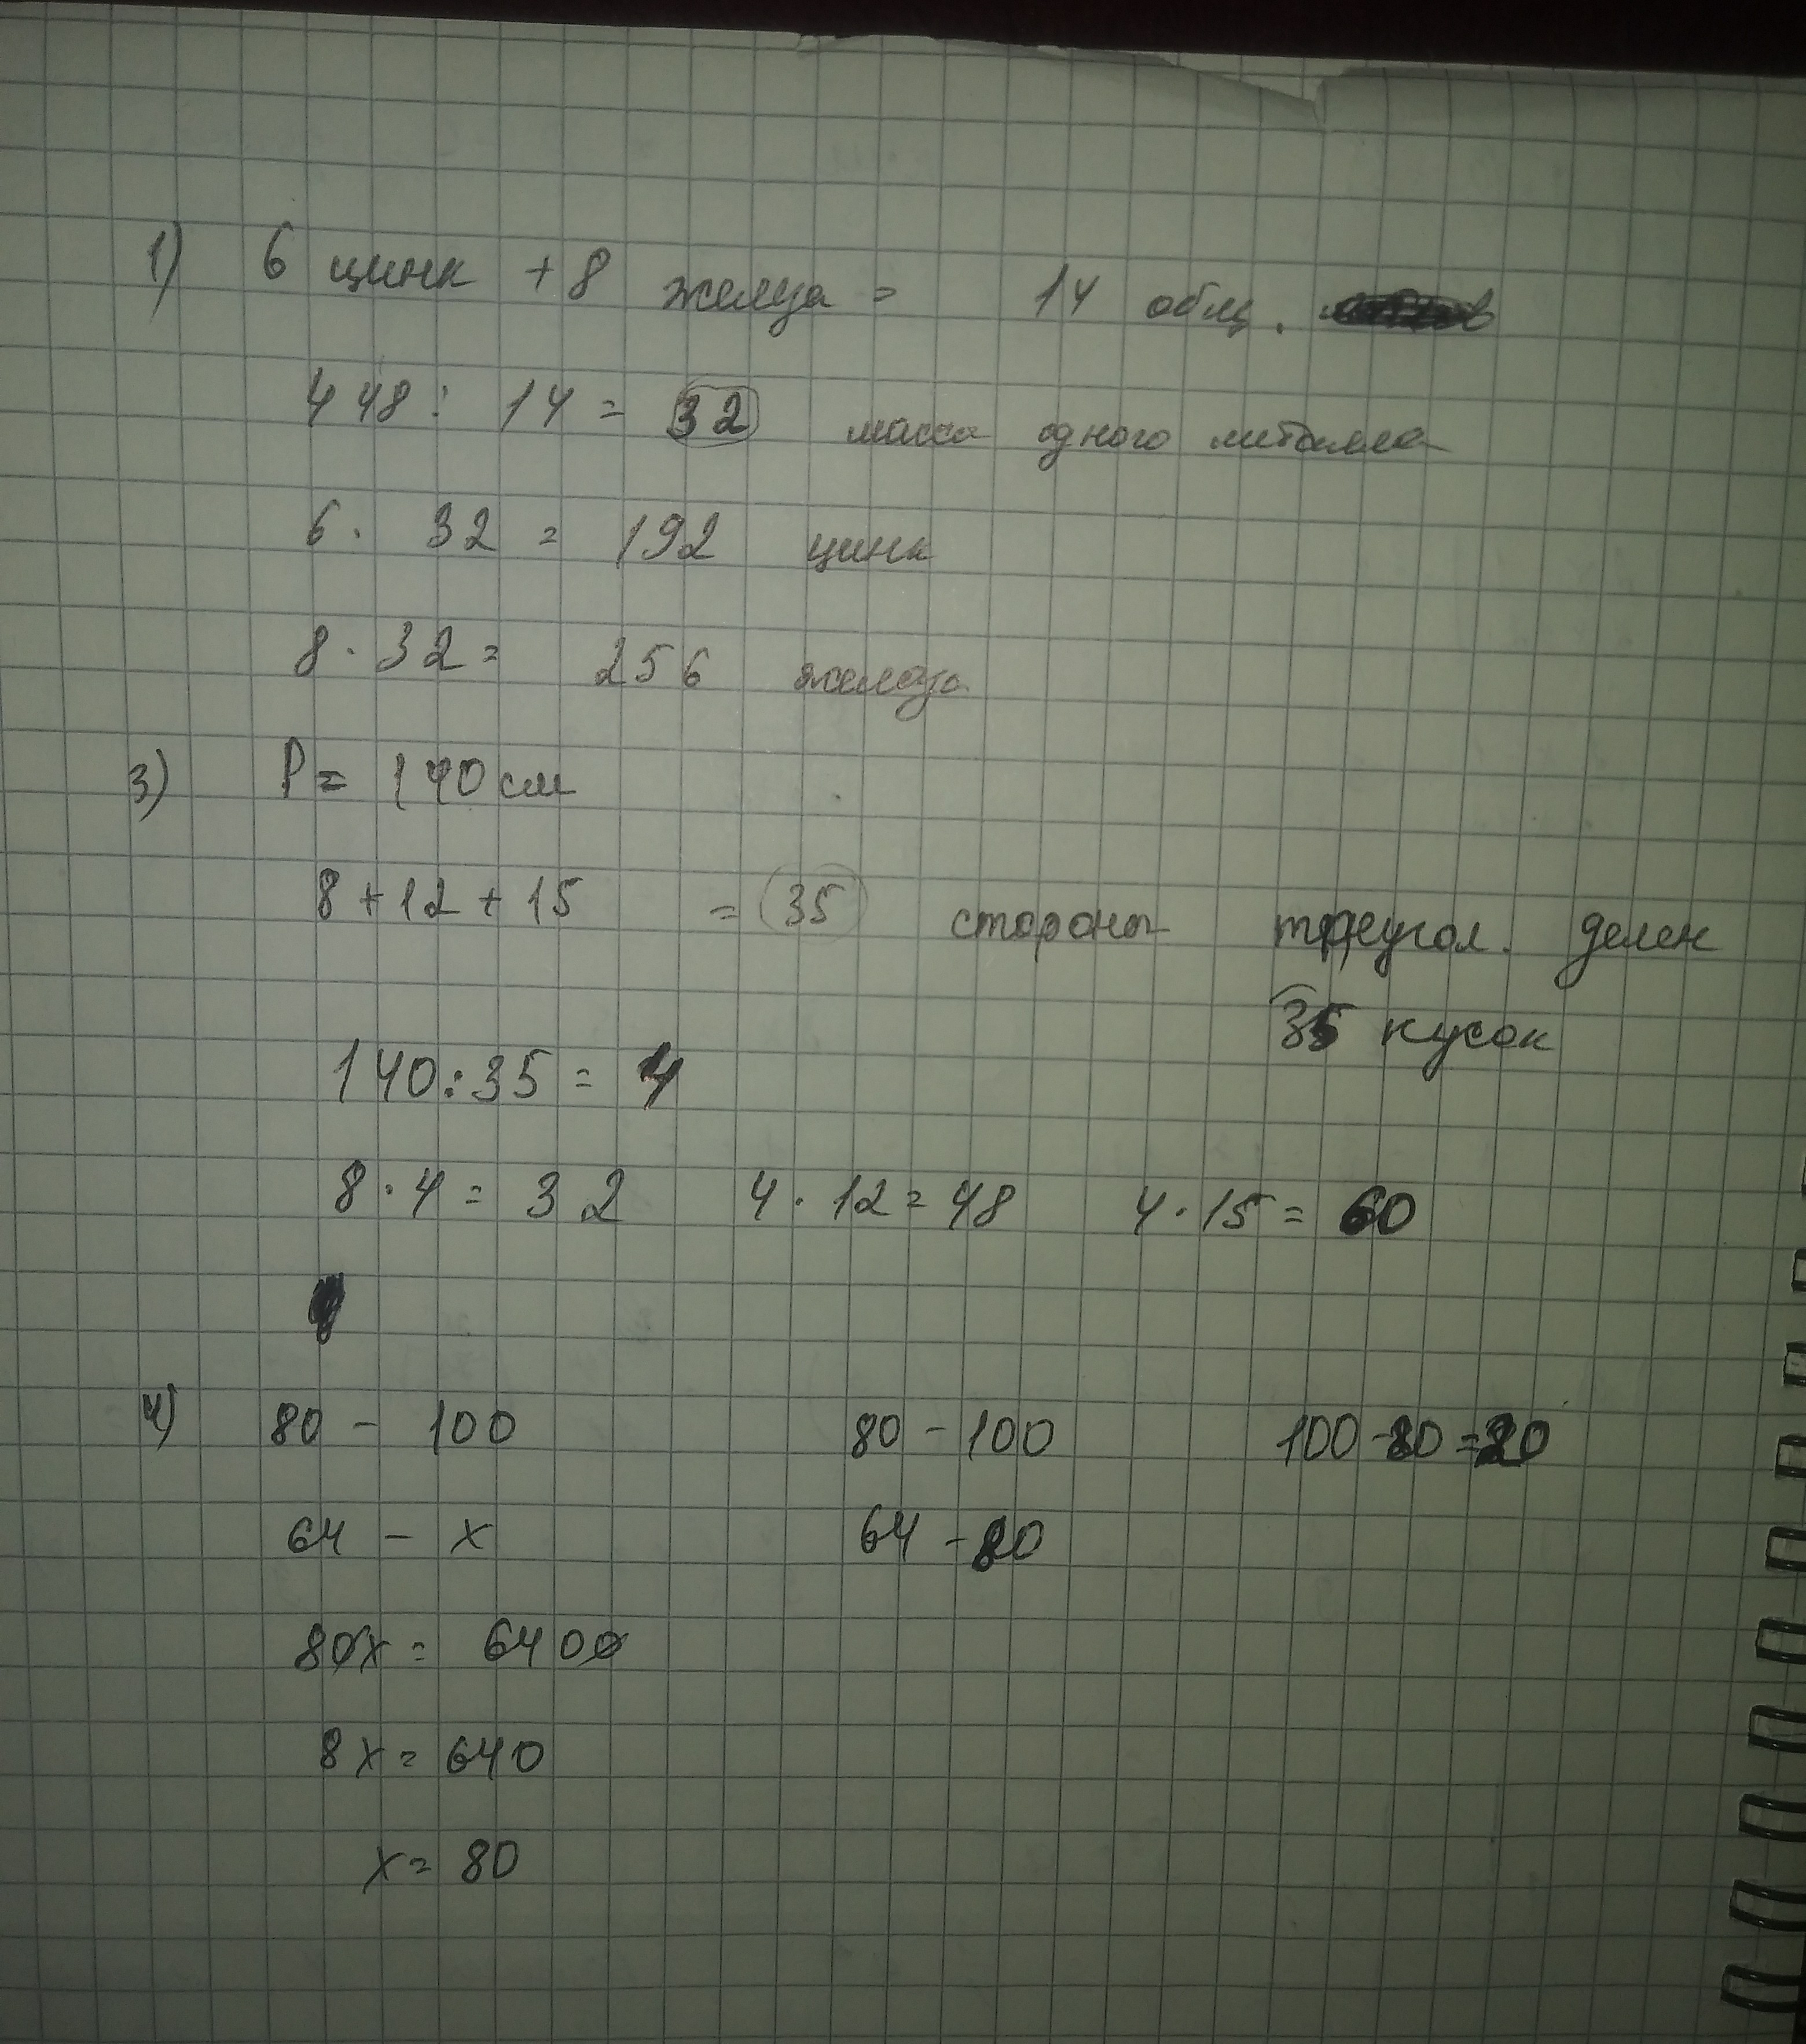 1) 6 цинк + 8 железа = 14 общ.
448 : 14 = 32 масса одного металла
6 · 32 = 192 цинк
8 · 32 = 256 железа
3) P = 140 см
8 + 12 + 15 = 35 стороны треугол. делен
35 кусок
140 : 35 = 4
8 · 4 = 32 4 · 12 = 48 4 · 15 = 60
4) 80 - 100 80 - 100 100 - 80 = 20
64 - x 64 - 80
80x = 6400
8x = 640
x = 80